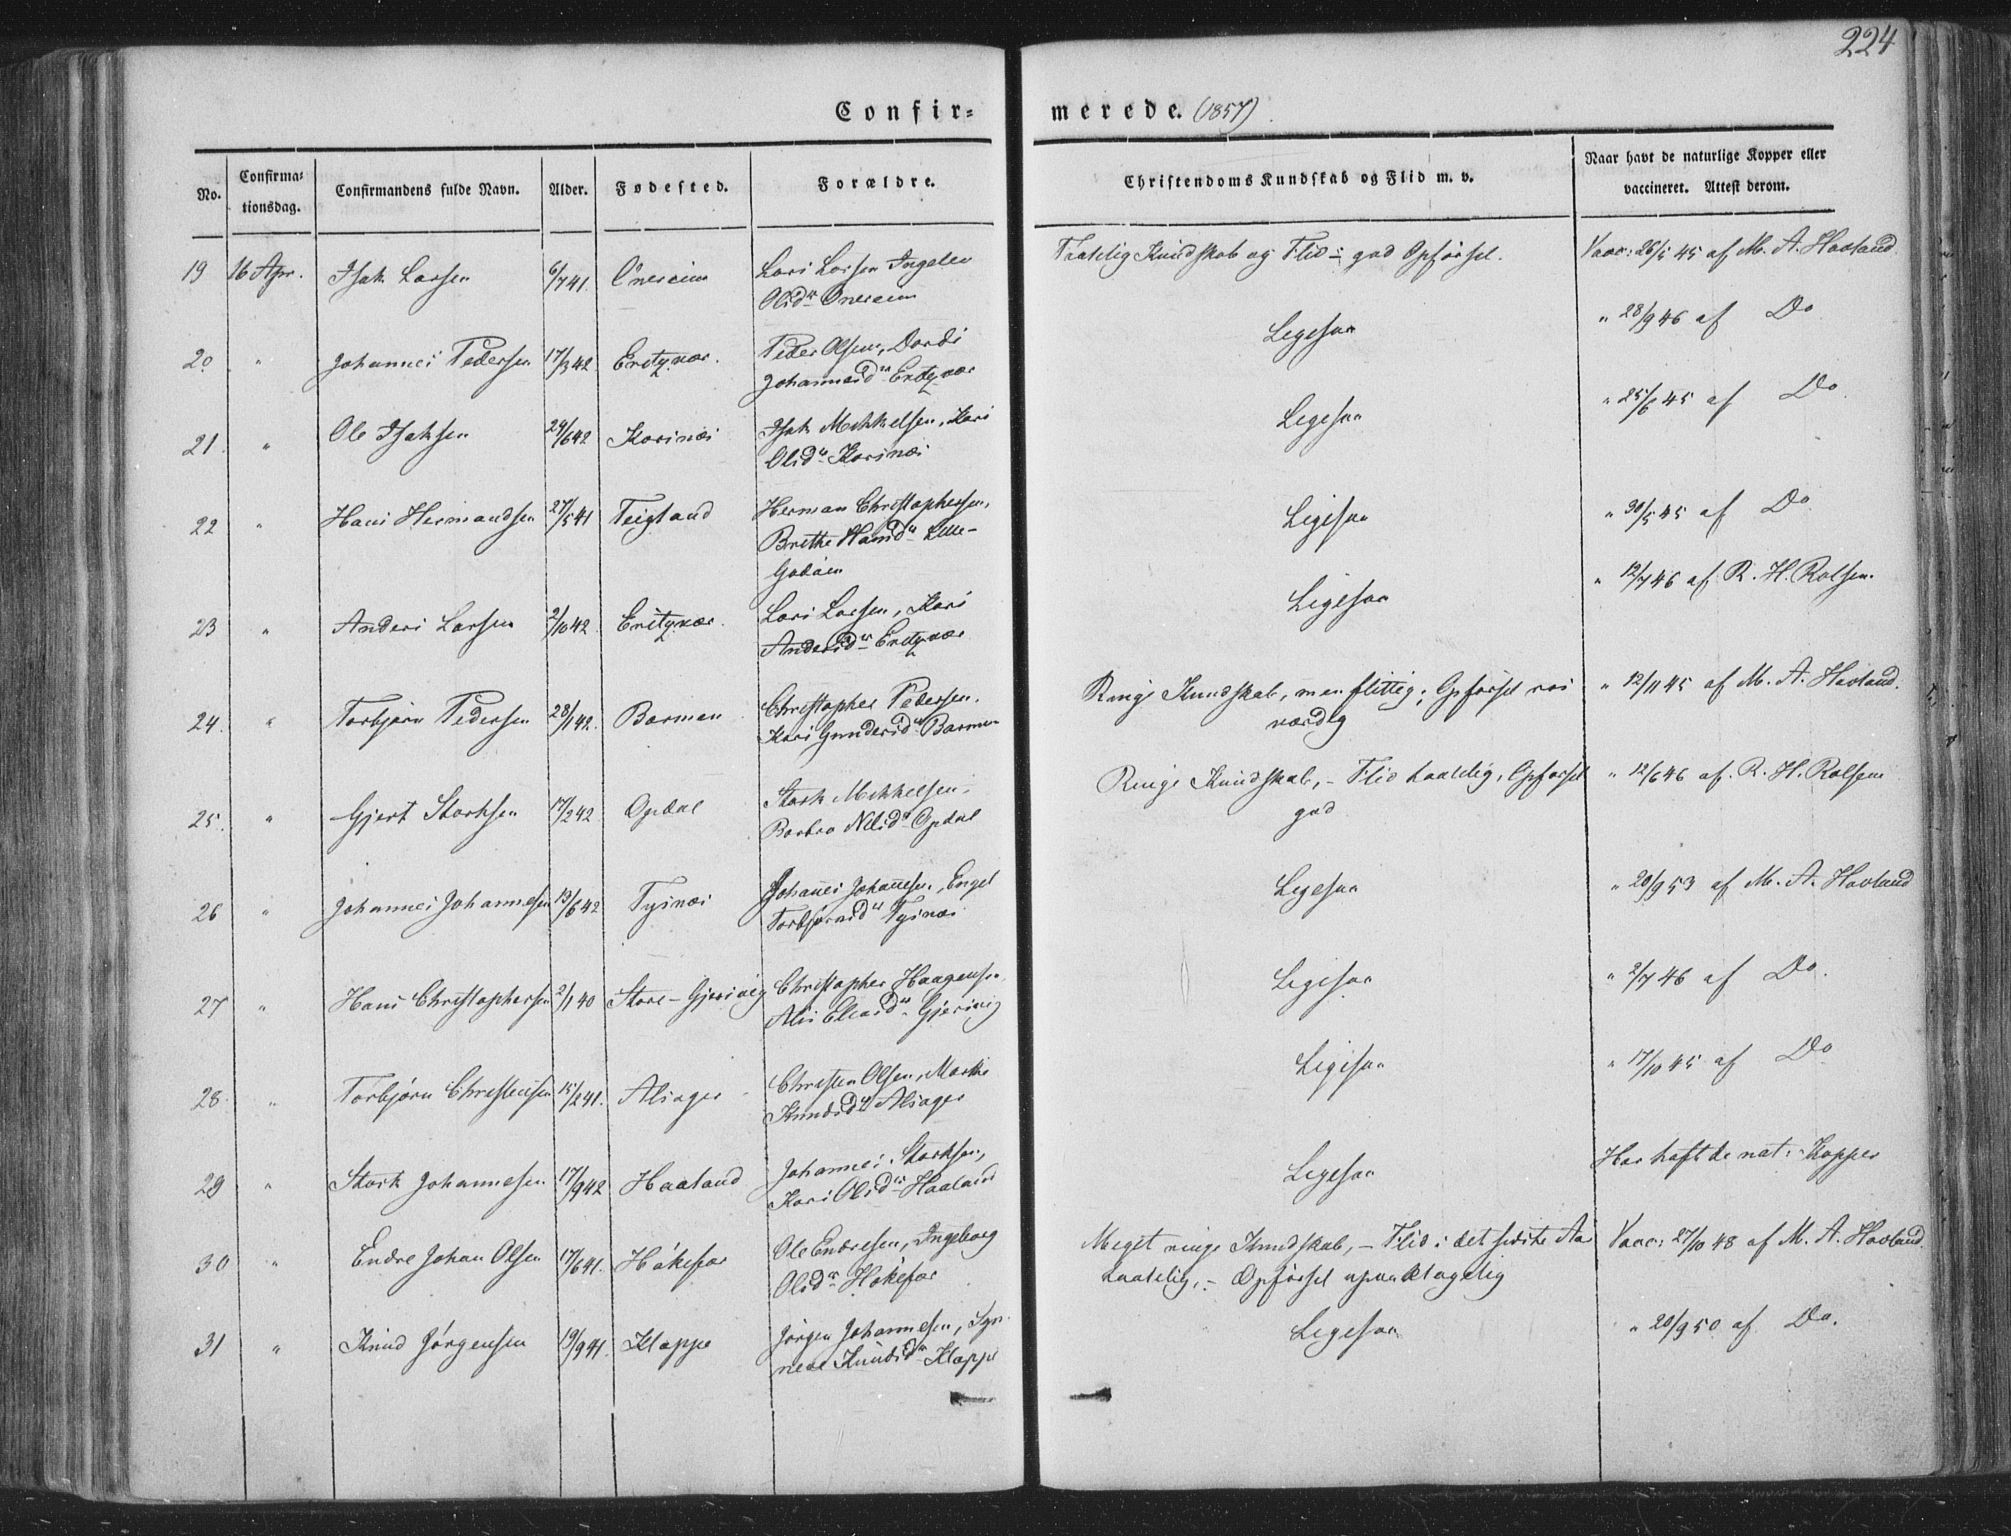 224
Confir- merede. (1857)
No. Confirma-tionsdag. Confirmandens fulde Navn. Alder. Fødested. Forældre. Christendoms Kundskab og Flid m. v. Naar havt de naturlige Kopper eller vaccineret. Attest derom.
19 16 Apr. Isak Larsen 6/7 41. Onereim Lars Larsen Ingelev Taalelig Kundskab og Flid - god Opførsel. Vacc: 26/5 45 af M. A. Havland
Olsdr Onereim
20 " Johannes Pedersen 17/3 42 Eretzvær. Peder Olsen, Dordi Ligesaa " 28/9 46 af Do
Johannesdr Eretzvær
21 " Ole Isaksen 24/6 42 Korsnæs Isak Mikkelsen, Kari Ligesaa " 25/6 45 af Do
Olsdr Korsnæs
22 " Hans Hermandsen 27/5 41 Teigland Herman Christophersen, Ligesaa " 30/5 45 af Do
Brithe Hansdr Lille-
Godøen
23 " Anders Larsen 2/10 42 Eretzvær. Lars Larsen, Kari Ligesaa " 12/7 46 af R. H. Rolsen.
Andersdr Eretzvær
24. " Torbjørn Pedersen 28/1 42. Barmen Christopher Pedersen. Ringe Kundskab, men flittig; Opførsel ros " 12/11 45 af M. A. Havland.
Kari Gundersdr Barmen værdig
25. " Gjert Storksen 17/2 42 Opdal Stork Mikkelsen, Ringe Kundskab, - Flid taalelig, Opførsel " 12/6 46 af R. H. Rolsen
Barbro Nilsdr Opdal god
26 " Johannes Johannesen 13/6 42 Tysnæs Johanes Johanesen, Engel Ligesaa " 20/9 53 af M. A. Havland
Torbjørnsdr Tysnæs
27 " Hans Christophersen 2/1 40 Store-Gjersvig Christopher Haagensen Ligesaa " 2/7 46 af Do.
Alis Eliasdr Gjersvig
28. " Torbjørn Christensen 15/2 41. Alsager Christen Olsen, Marthe Ligesaa " 17/10 45 af Do
Knudsdr Alsager
29 " Stork Johannesen 17/9 42 Haaland Johannes Storksen, Ligesaa Har haft de nat: Kopper
Kari Olsdr Haaland
30 " Endre Johan Olsen 17/6 41. Håkefar Ole Endresen, Ingeborg Meget ringe Kundskab, - Flid i det sidste Aar Vacc: 27/10 48 af M. A. Havland
Olsdr Håkefar taalelig, - Opførsel upaaklagelig
31 " Knud Jørgensen 19/9 41. Kloppe Jørgen Johannesen, Syn- Ligesaa " 20/9 50 af Do.
neve Knudsdr Kloppe